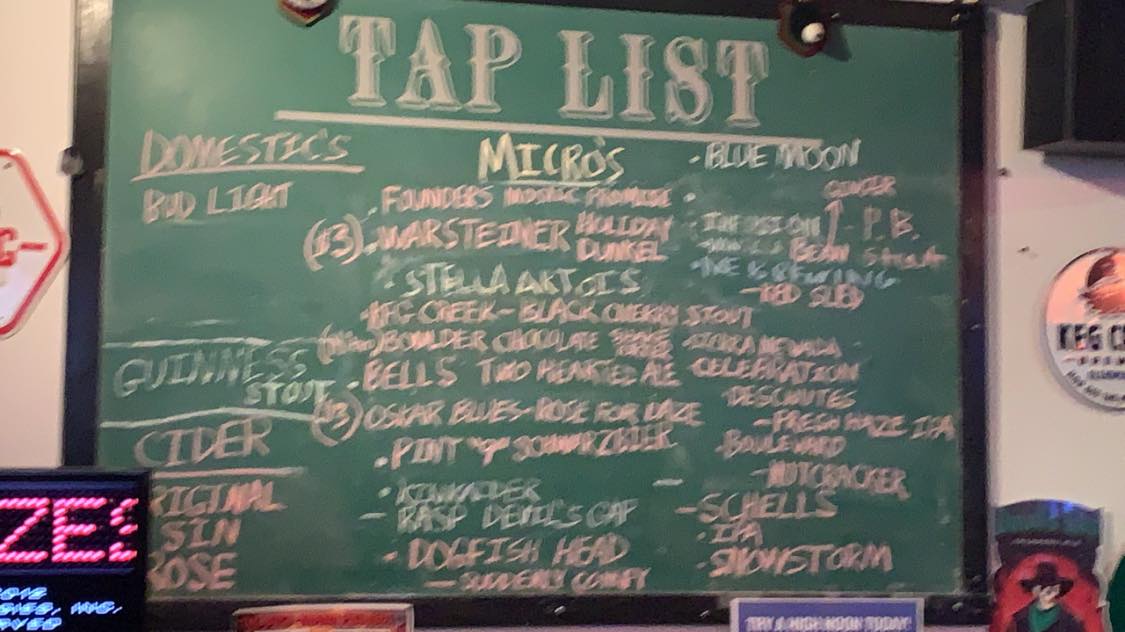 TAP LIST
DOMESTIC'S
BUD LIGHT
GUINNESS
STOUT
CIDER
RIGINAL
SIN
ROSE
MICRO'S
FOUNDERS MOSAIC PROMISE
($3) WARSTEINER HOLIDAY
DUNKEL
STELLA ARTOIS
KEG CREEK - BLACK CHERRY STOUT
BOULDER CHOCOLATE
BELLS TWO HEARTED ALE
($3) OSKAR BLUES - ROSE FOR DAZE
PINT "9" SCHWARZBIER
KINKAIDER
- RASP DEVIL'S GAP
DOGFISH HEAD
- SUDDENLY COMFY
BLUE MOON
GINGER
INFUSION P.B.
BEAN STOUT
BREWING
- RED SLED
SIERRA NEVADA
CELEBRATION
DESCHUTES
- FRESH HAZE IPA
BOULEVARD
- NUTCRACKER
- SCHELLS
IPA
SNOWSTORM
ZES
KEG C
TRY A HIGH NOON TODAY!